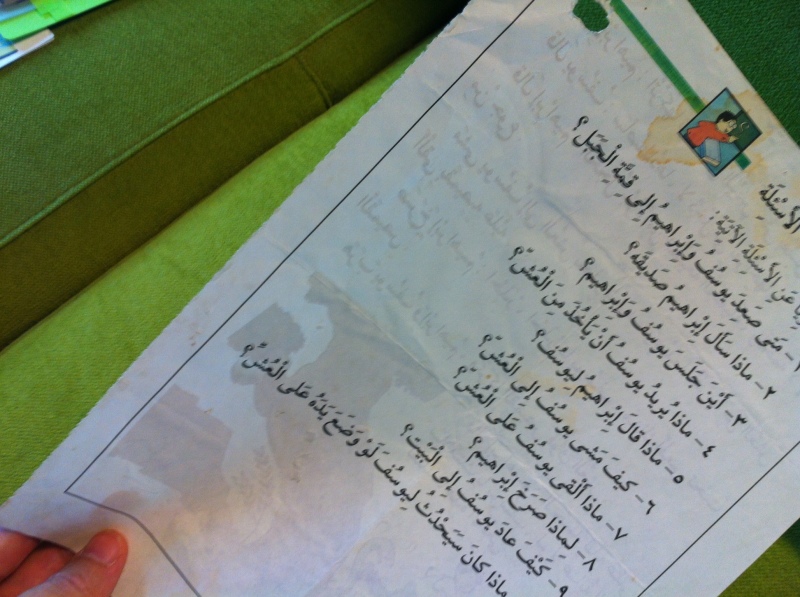 الأَسْئِلَةِ
عَنِ الأَسْئِلَةِ الآتِيَةِ:
١- مَتى صَعِدَ يوسُفُ وَإِبْراهيمُ إِلى قِمَّةِ الْجَبَلِ؟
٢- ماذا سَأَلَ إِبْراهيمُ صَديقَهُ؟
٣- أَيْنَ جَلَسَ يوسُفُ وَإِبْراهيمُ؟
٤- ماذا يُريدُ يوسُفُ أَنْ يَأْخُذَ مِنَ الْعُشِّ؟
٥- ماذا قالَ إِبْراهيمُ لِيوسُفَ؟
٦- كَيْفَ مَشى يوسُفُ إِلى الْعُشِّ؟
٧- ماذا أَلْقى يوسُفُ عَلى الْعُشِّ؟
٨- لِماذا صَرَخَ إِبْراهيمُ؟
٩- كَيْفَ عادَ يوسُفُ إِلى الْبَيْتِ؟
ماذا كانَ سَيَحْدُثُ لِيوسُفَ لَوْ وَضَعَ يَدَهُ عَلى الْعُشِّ؟